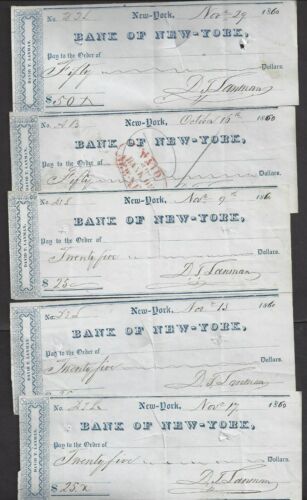 No. New-York, Nov. 29 1860
BANK OF NEW-YORK,
Pay to the Order of
Fifty Dollars.
$50 D. T. Lanman
DAVID T. LANMAN,
No. New-York, October 15th 1860
BANK OF NEW-YORK,
Pay to the Order of
Fifty
PAID
DAVID T. LANMAN,
No. New-York, Nov. 9th 1860
BANK OF NEW-YORK,
Pay to the Order of
Twenty five Dollars.
$25 D. T. Lanman
DAVID T. LANMAN,
No. New-York, Nov. 13 1860
BANK OF NEW-YORK,
Pay to the Order of
Twenty five Dollars.
D. T. Lanman
DAVID T. LANMAN,
No. New-York, Nov. 17 1860
BANK OF NEW-YORK,
Pay to the Order of
Twenty five Dollars.
$25 D. T. Lanman
DAVID T. LANMAN,